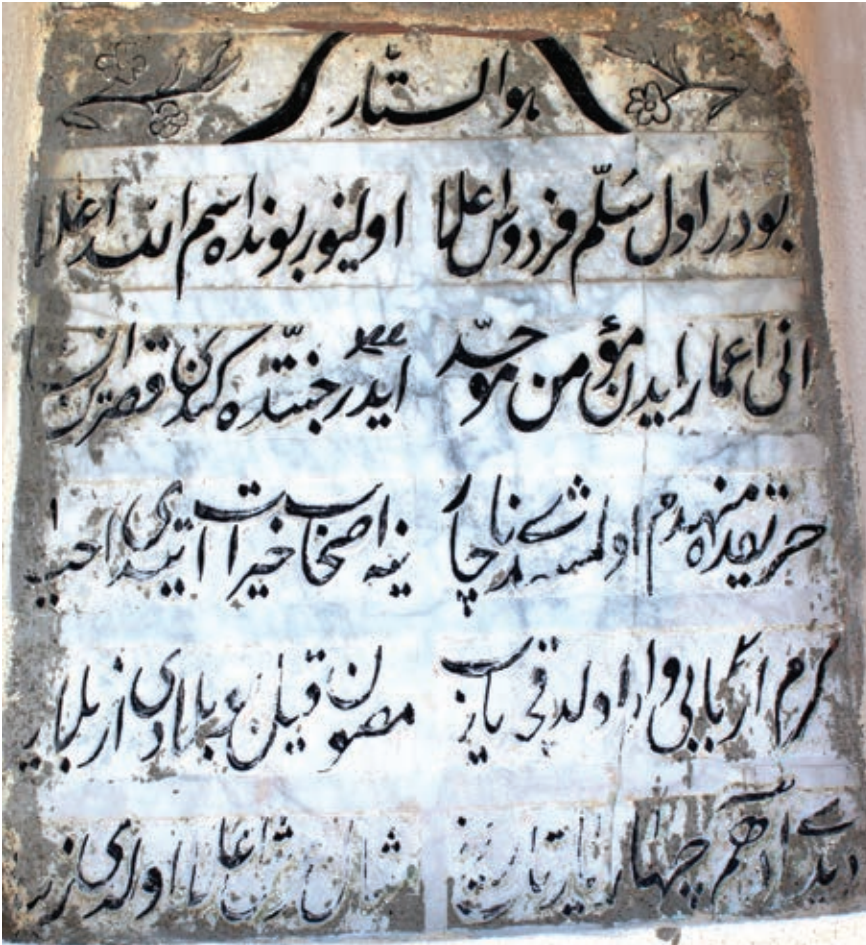 هو الستّار
بودر اول سُلّم فردوس اعلا اولنیور بونده اسم الله اعلا
انی اعمار ایدن مؤمن موحّد ایدر جنّتده کندی قصرن
حریقده منهدم اولمشدی ناچار ینه اصحاب خیرات ایتدی احیا
کرم اربابی وار اولدقجه یارب مصون قیل بو بلادی از بلایا
دیدی ادهم چهار یار تاریخ اعلا اولدی